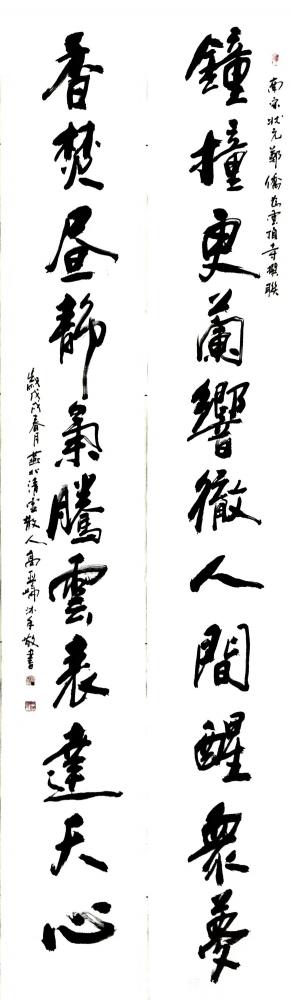 南宋狀元鄭僑為雲頂寺撰聯
鐘撞更蘭響徹人間醒衆夢
香焚昼靜氣騰雲表達天心
歲戊戌春月燕北清雲散人高亞鳴沐手敬書